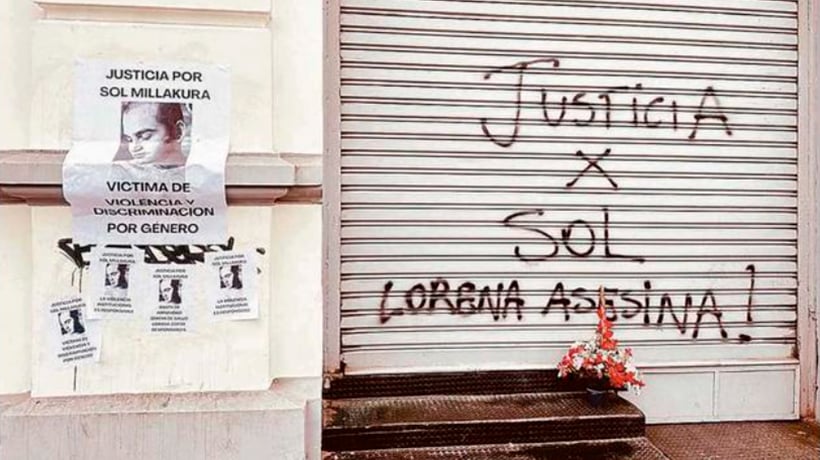 JUSTICIA POR
SOL MILLAKURA
VICTIMA DE
VIOLENCIA Y
DISCRIMINACION
POR GÉNERO
JUSTICIA POR
SOL MILLAKURA
VICTIMA DE
VIOLENCIA Y
DISCRIMINACION
POR GÉNERO
JUSTICIA POR
SOL MILLAKURA
LA VIOLENCIA
INSTITUCIONAL
ES RESPONSABLE
JUSTICIA POR
SOL MILLAKURA
JUSTICIA POR
SOL MILLAKURA
LA VIOLENCIA
INSTITUCIONAL
ES RESPONSABLE
JUSTICIA
X
SOL
LORENA ASESINA!